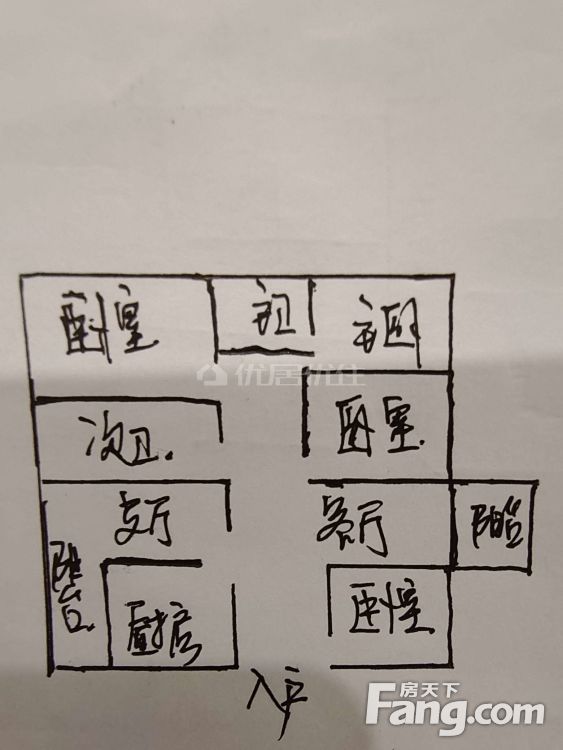 卧室
主卫
主卧
优居优住
次卫.
卧室.
客厅
阳台
阳台
厨房
卧室
入户
房天下
Fang.com